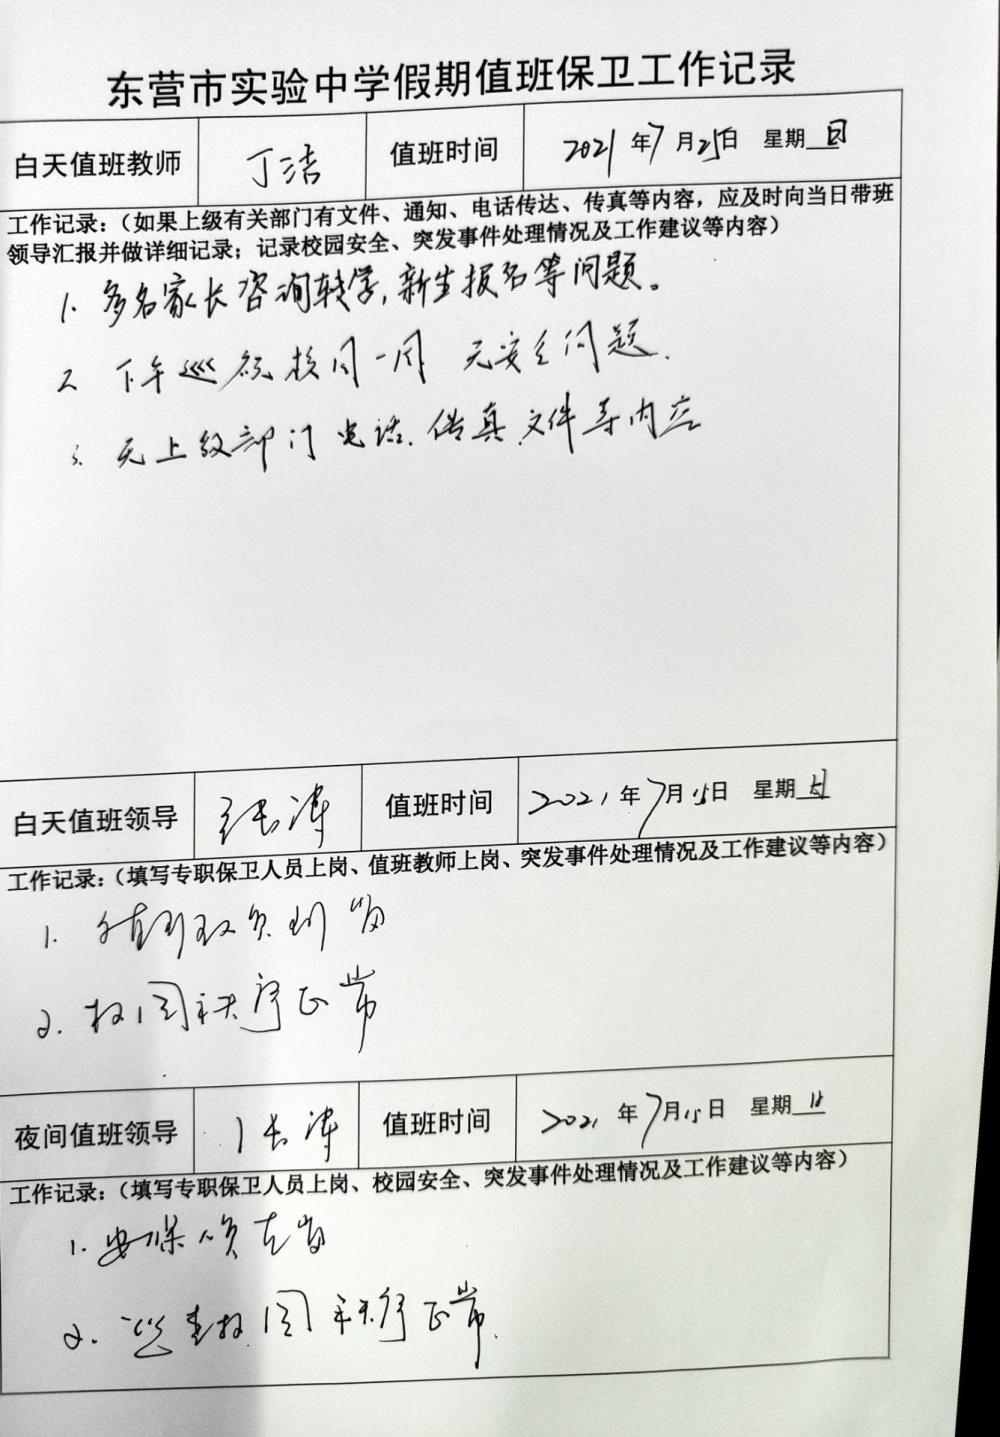 东营市实验中学假期值班保卫工作记录
白天值班教师 丁洁 值班时间 2021年7月25日 星期日
工作记录：（如果上级有关部门有文件、通知、电话传达、传真等内容，应及时向当日带班
领导汇报并做详细记录；记录校园安全、突发事件处理情况及工作建议等内容）
1. 多名家长咨询转学，新生报名等问题。
2 下午巡视校园一周 无安全问题.
3. 无上级部门电话.传真.文件等内容
白天值班领导 张涛 值班时间 2021年7月25日 星期日
工作记录：（填写专职保卫人员上岗、值班教师上岗、突发事件处理情况及工作建议等内容）
1. 到岗
2. 校园秩序正常
夜间值班领导 张涛 值班时间 2021年7月25日 星期日
工作记录：（填写专职保卫人员上岗、校园安全、突发事件处理情况及工作建议等内容）
1. 安保人员在岗
2. 巡查校园秩序正常.